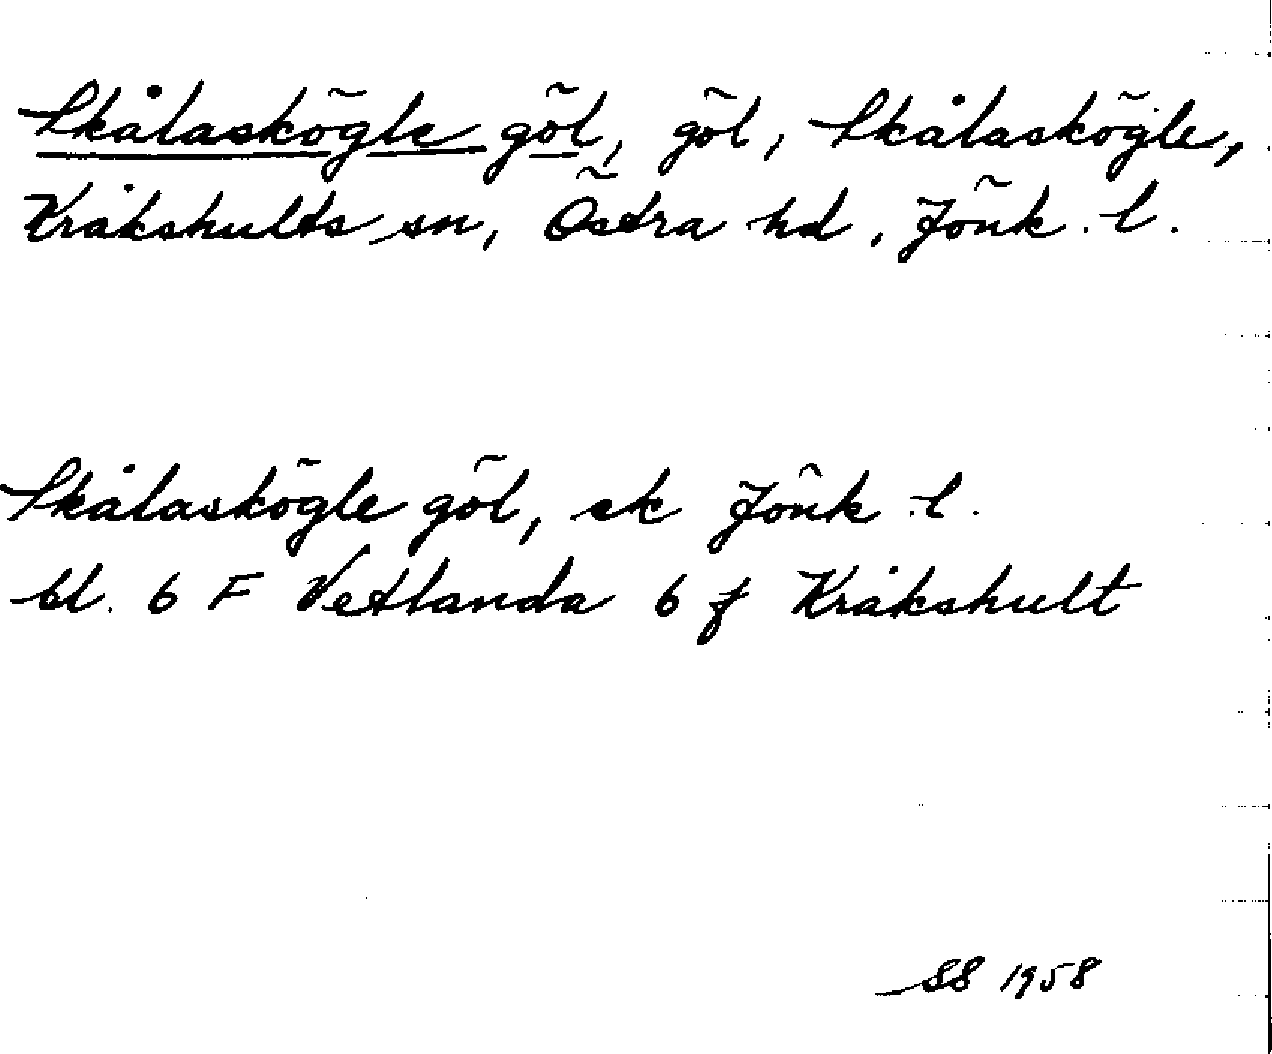 Skålaskögle göl, göl, Skålaskögle,
Kråkshults sn, Östra hd, Jönk. l.
Skålaskögle göl, ek Jönk. l.
bl. 6 F Vetlanda 6 f Kråkshult
SS 1958